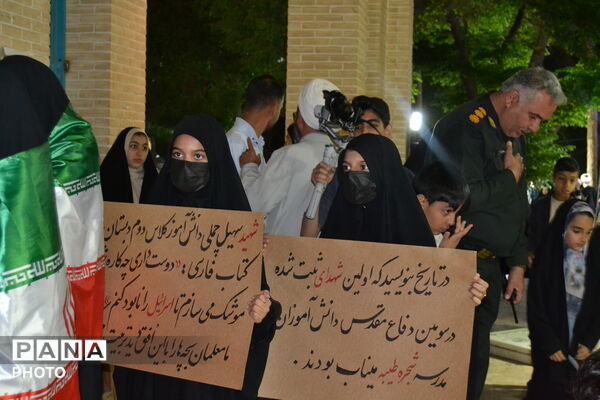 شهید سهیل چملی دانش‌آموز کلاس دوم دبستان
کتاب فارسی: «دوست داری چه کاره
موشک می سازم تا اسرائیل را نابود کنم»
ما معلمان بچه‌ها را با این افق تربیت
در تاریخ بنویسید که اولین شهدای ثبت شده
در سومین دفاع مقدس دانش آموزان
مدرسه شجره طیبه میناب بودند.
PANA
PHOTO